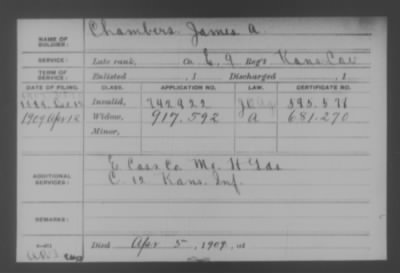 NAME OF SOLDIER: Chambers James A.
SERVICE: Late rank, Co. E, 9 Reg't Kans Cav
TERM OF SERVICE: Enlisted , 1 Discharged , 1
DATE OF FILING. CLASS. APPLICATION NO. LAW. CERTIFICATE NO.
Invalid, 742.922
1909 Apr 12 Widow, 917.592 A 681.270
Minor,
ADDITIONAL SERVICES: E Cass Co Mo. H Gds
C 12 Kans. Inf.
REMARKS:
Died Apr 5, 1909, at